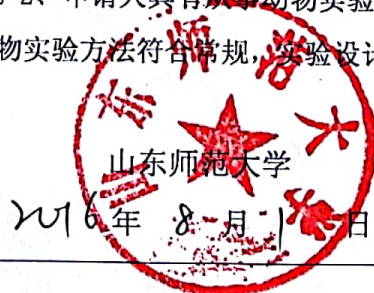 2、申请人具有从事动物实验
物实验方法符合常规，实验设计
山东师范大学
2016年 8 月 1 日
山东师范大学